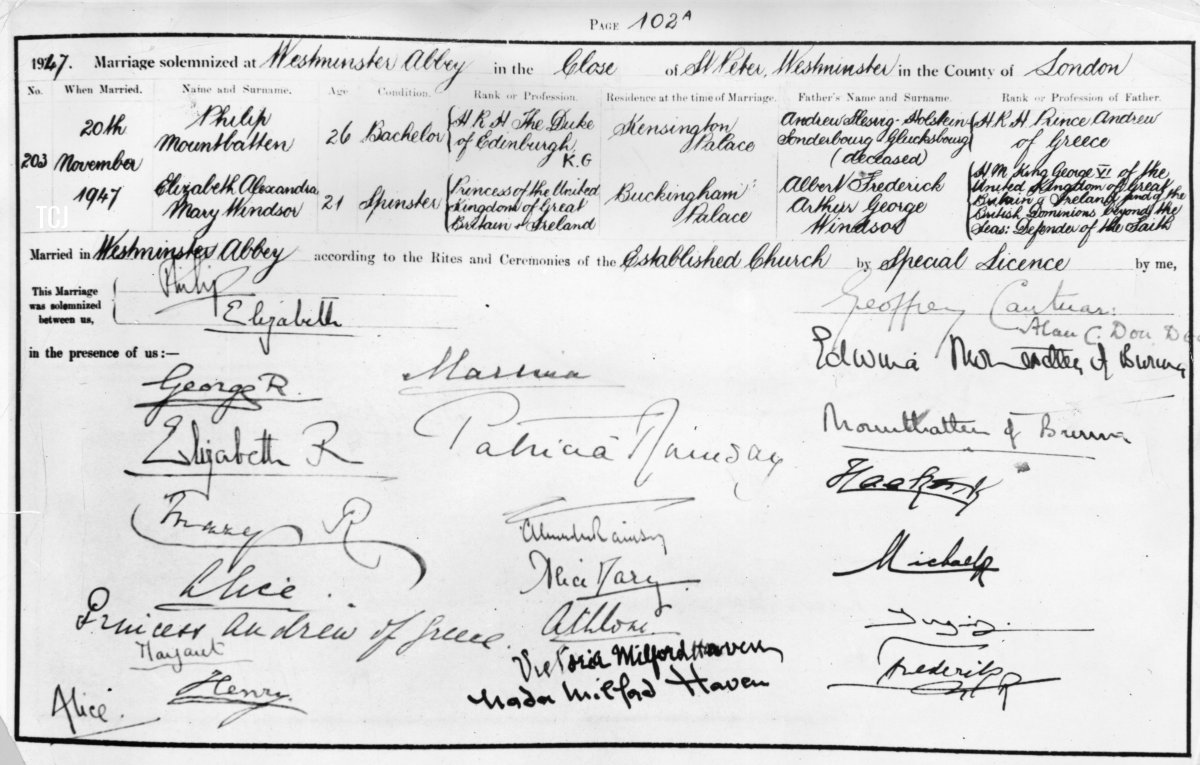 PAGE 102A
1947. Marriage solemnized at Westminster Abbey in the Close of St Peter, Westminster in the County of London
No. When Married. Name and Surname. Age Condition. Rank or Profession. Residence at the time of Marriage. Father's Name and Surname. Rank or Profession of Father.
203
20th
November
1947
Philip
Mountbatten
26 Bachelor
H.R.H The Duke
of Edinburgh
K.G
Kensington
Palace
Andrew Slesvig-Holstein
Sonderbourg Glucksbourg
(deceased)
H.R.H Prince Andrew
of Greece
Elizabeth Alexandra
Mary Windsor
21 Spinster
Princess of the United
Kingdom of Great
Britain & Ireland
Buckingham
Palace
Albert Frederick
Arthur George
Windsor
H.M. King George VI of the
United Kingdom of Great
Britain & Ireland and of the
British Dominions beyond the
Seas: Defender of the Faith
TCJ
Married in Westminster Abbey according to the Rites and Ceremonies of the Established Church by Special Licence by me,
This Marriage
was solemnized
between us,
Philip
Elizabeth
Geoffrey Cantuar:
Alan C. Don
in the presence of us:—
George R.
Elizabeth R
Mary R
Alice
Princess Andrew of Greece
Margaret
Henry
Alice.
Marina
Patricia Ramsay
Alexander Ramsay
Alice Mary
Athlone
Victoria Milford Haven
Nada Milford Haven
Edwina Mountbatten of Burma
Mountbatten of Burma
Haakon
Michael R
Frederik R